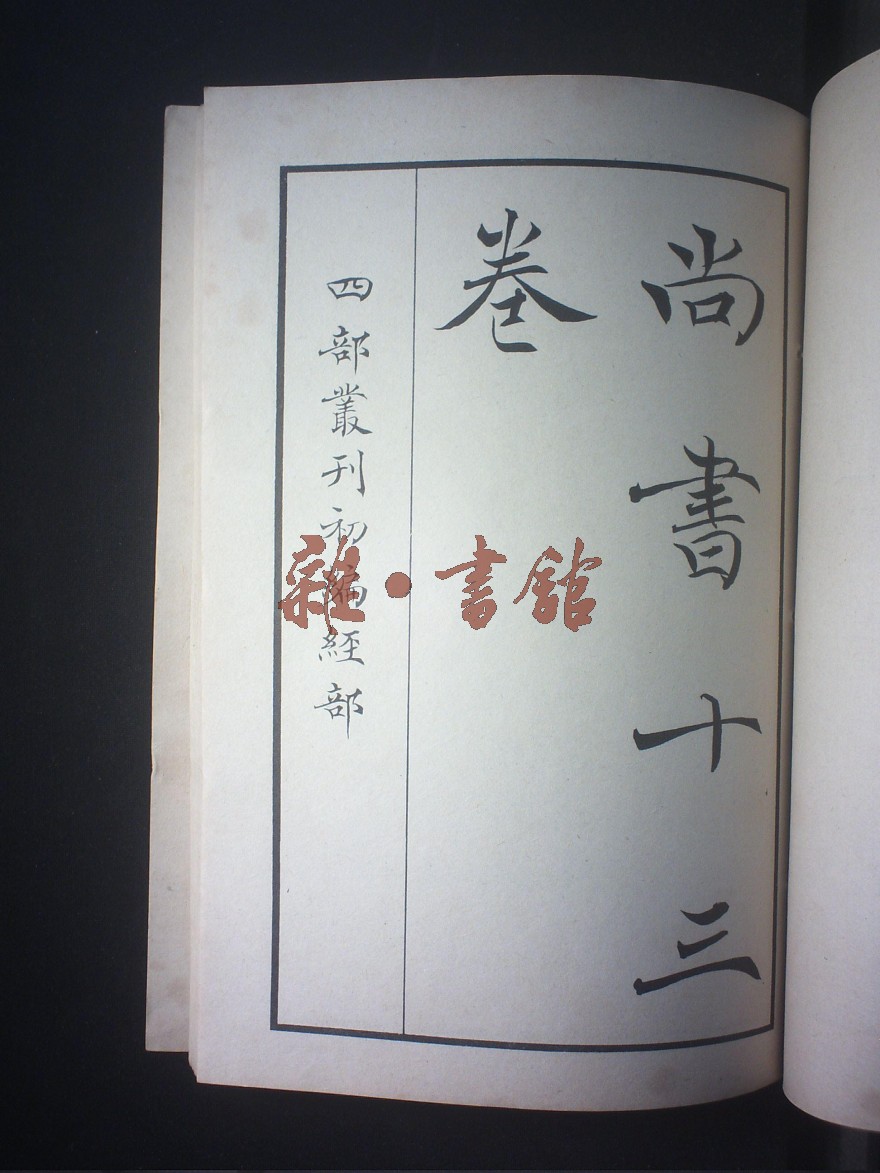 尚書十三
卷
四部叢刊初編經部
雜·書館